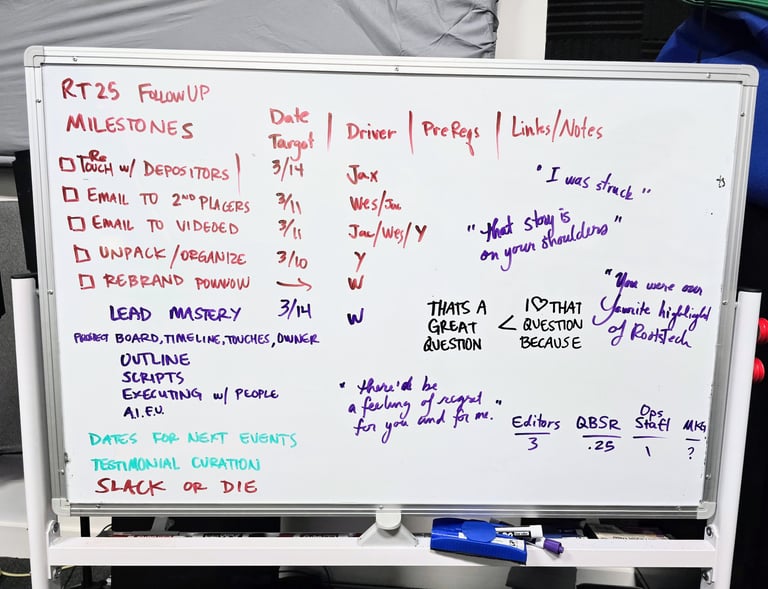 RT25 FOLLOWUP
MILESTONES | Date Target | Driver | PreReqs | Links/Notes
☐ ReTOUCH w/ DEPOSITORS | 3/14 Jax
☐ EMAIL TO 2ND PLACERS 3/11 Wes/Jac
☐ EMAIL TO VIDEOED 3/11 Jac/Wes/Y
☐ UNPACK/ORGANIZE 3/10 Y
☐ REBRAND POWWOW → W
LEAD MASTERY 3/14 W
PROJECT BOARD, TIMELINE, TOUCHES, OWNER
OUTLINE
SCRIPTS
EXECUTING w/ PEOPLE
DATES FOR NEXT EVENTS
TESTIMONIAL CURATION
SLACK OR DIE
"I was struck"
"that story is
on your shoulders"
"You were our
favorite highlight
of RootsTech
THATS A
GREAT
QUESTION
<
I ♡ THAT
QUESTION
BECAUSE
"there'd be
a feeling of regret
for you and for me."
Editors QBSR Ops Staff MKG
3 .25 1 ?